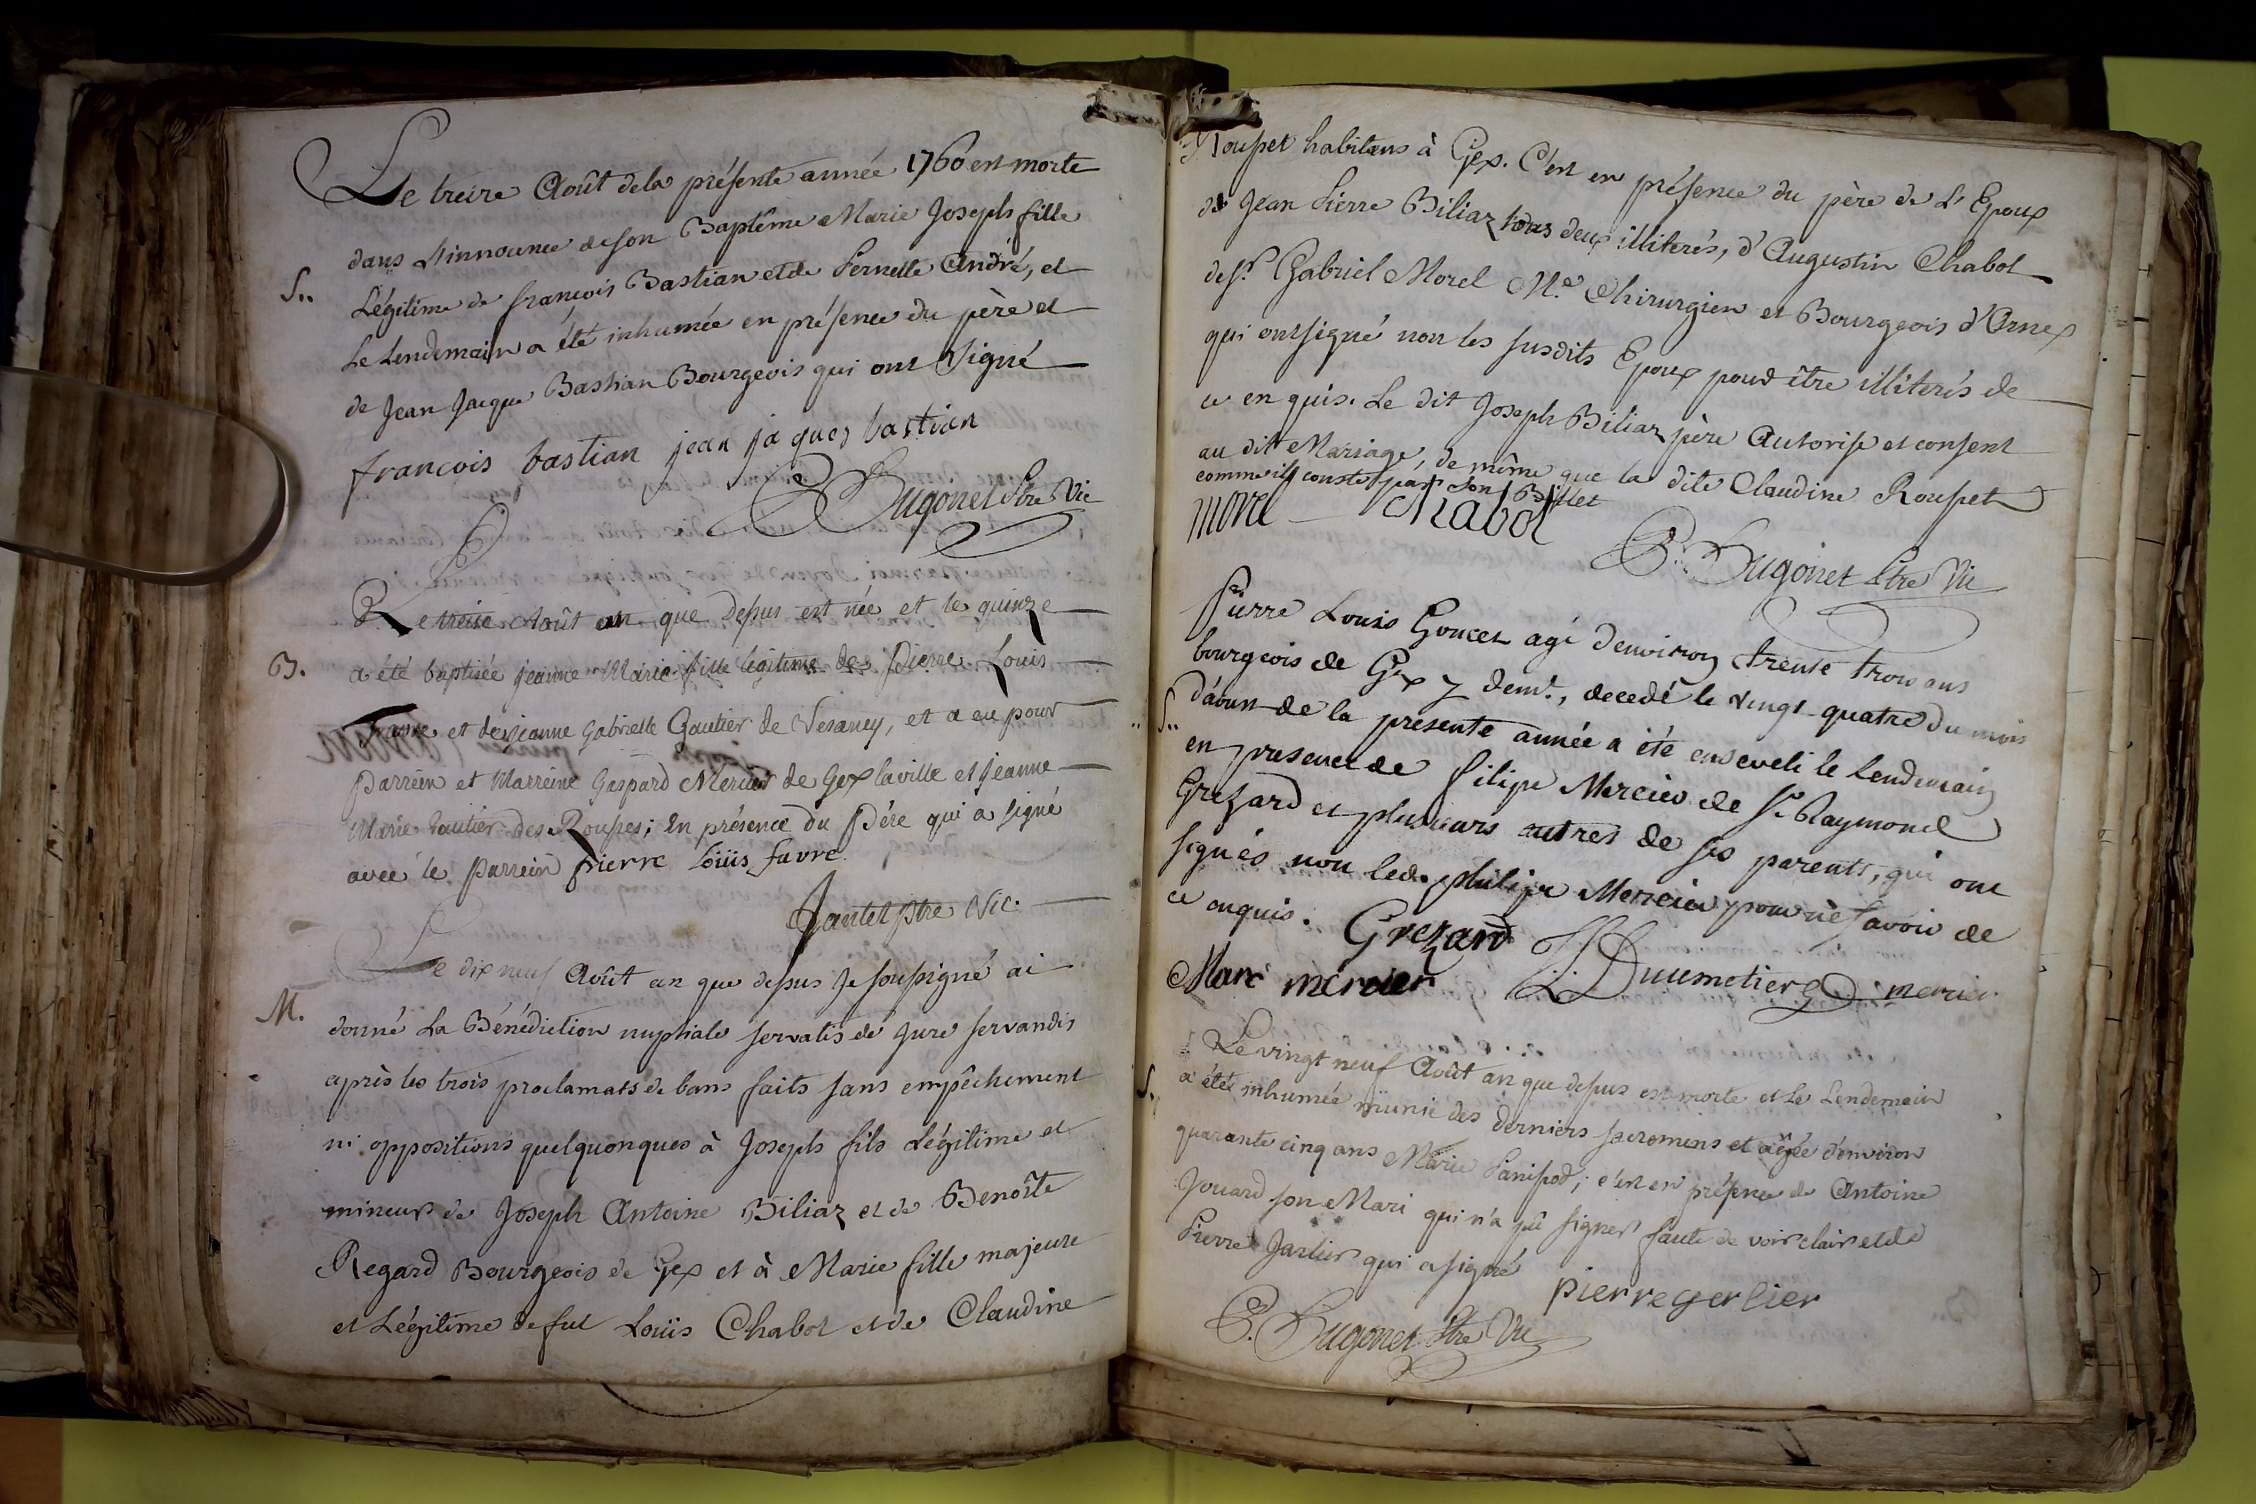 Le treize Août de la présente année 1760 est morte
dans L'innocence de son Baptême Marie Joseph fille
S..
Légitime de françois Bastian et de Pernette André, et
Le Lendemain a été inhumée en présence du père et
de Jean Jacque Bastian Bourgeois qui ont Signé
francois bastian jean jaques bastian
P. Dugonet Ptre Vic
Le treize Août an que depus est née et le quinze
B. a été baptisée jeanne Marie fille légitime de Pierre Louis
favre et de jeanne Gabrielle Gautier de Vesancy, et a eu pour
Parrein et Marreine Gaspard Mercier de Gex la ville et jeanne
Marie Gautier des Roupes; En présence du Père qui a signé
avec le Parrein pierre loüis favre
Jantet ptre Vic.
Le dix neuf Août an que depus Je soussigné ai
M. donné La Bénédiction nuptiale servatis de jure servandis
après les trois proclamats de bans faits sans empêchement
ni oppositions quelquonques à Joseph fils Légitime et
mineur de Joseph Antoine Biliaz et de Benoîte
Regard Bourgeois de Gex et à Marie fille majeure
et Légitime de fut Loüis Chabot et de Claudine
Roupet habitans à Gex. C'est en présence du père de L'Epoux
de Jean Pierre Biliaz tous deux illiterés, d'Augustin Chabot
de Sr. Gabriel Morel Me. Chirurgien et Bourgeois d'Ornex
qui ont signé non les susdits Epoux pour être illiterés de
ce enquis. Le dit Joseph Biliaz père Autorise et consent
au dit Mariage, de même que la dite Claudine Roupet
comme il conste par son Billet
morel Chabot
P. Dugonet Ptre Vic
Pierre Louis Goucet agé denviron trente trois ans
bourgeois de Gex y demt., decedé le vingt-quatre du mois
S.. d'aoust de la presente année a été enseveli le lendemain
en presence de filipe Mercier de Sr. Raymond
Grezard et plusieurs autres de ses parents, qui ont
signés non led. philipe Mercier pour ne savoir de
ce enquis. Grezard
Marc mercier L. Duumetier mercier
Le vingt neuf Août an que depus est morte et Le Lendemain
S. a été inhumée munie des derniers sacremens et agée d'environ
quarante cinq ans Marie Panisod; c'est en présence de Antoine
Jouard son Mari qui n'a pû signer faute de voir clair et de
Pierre Jarlier qui a signé
pierre gerlier
P. Dugonet Ptre Vic